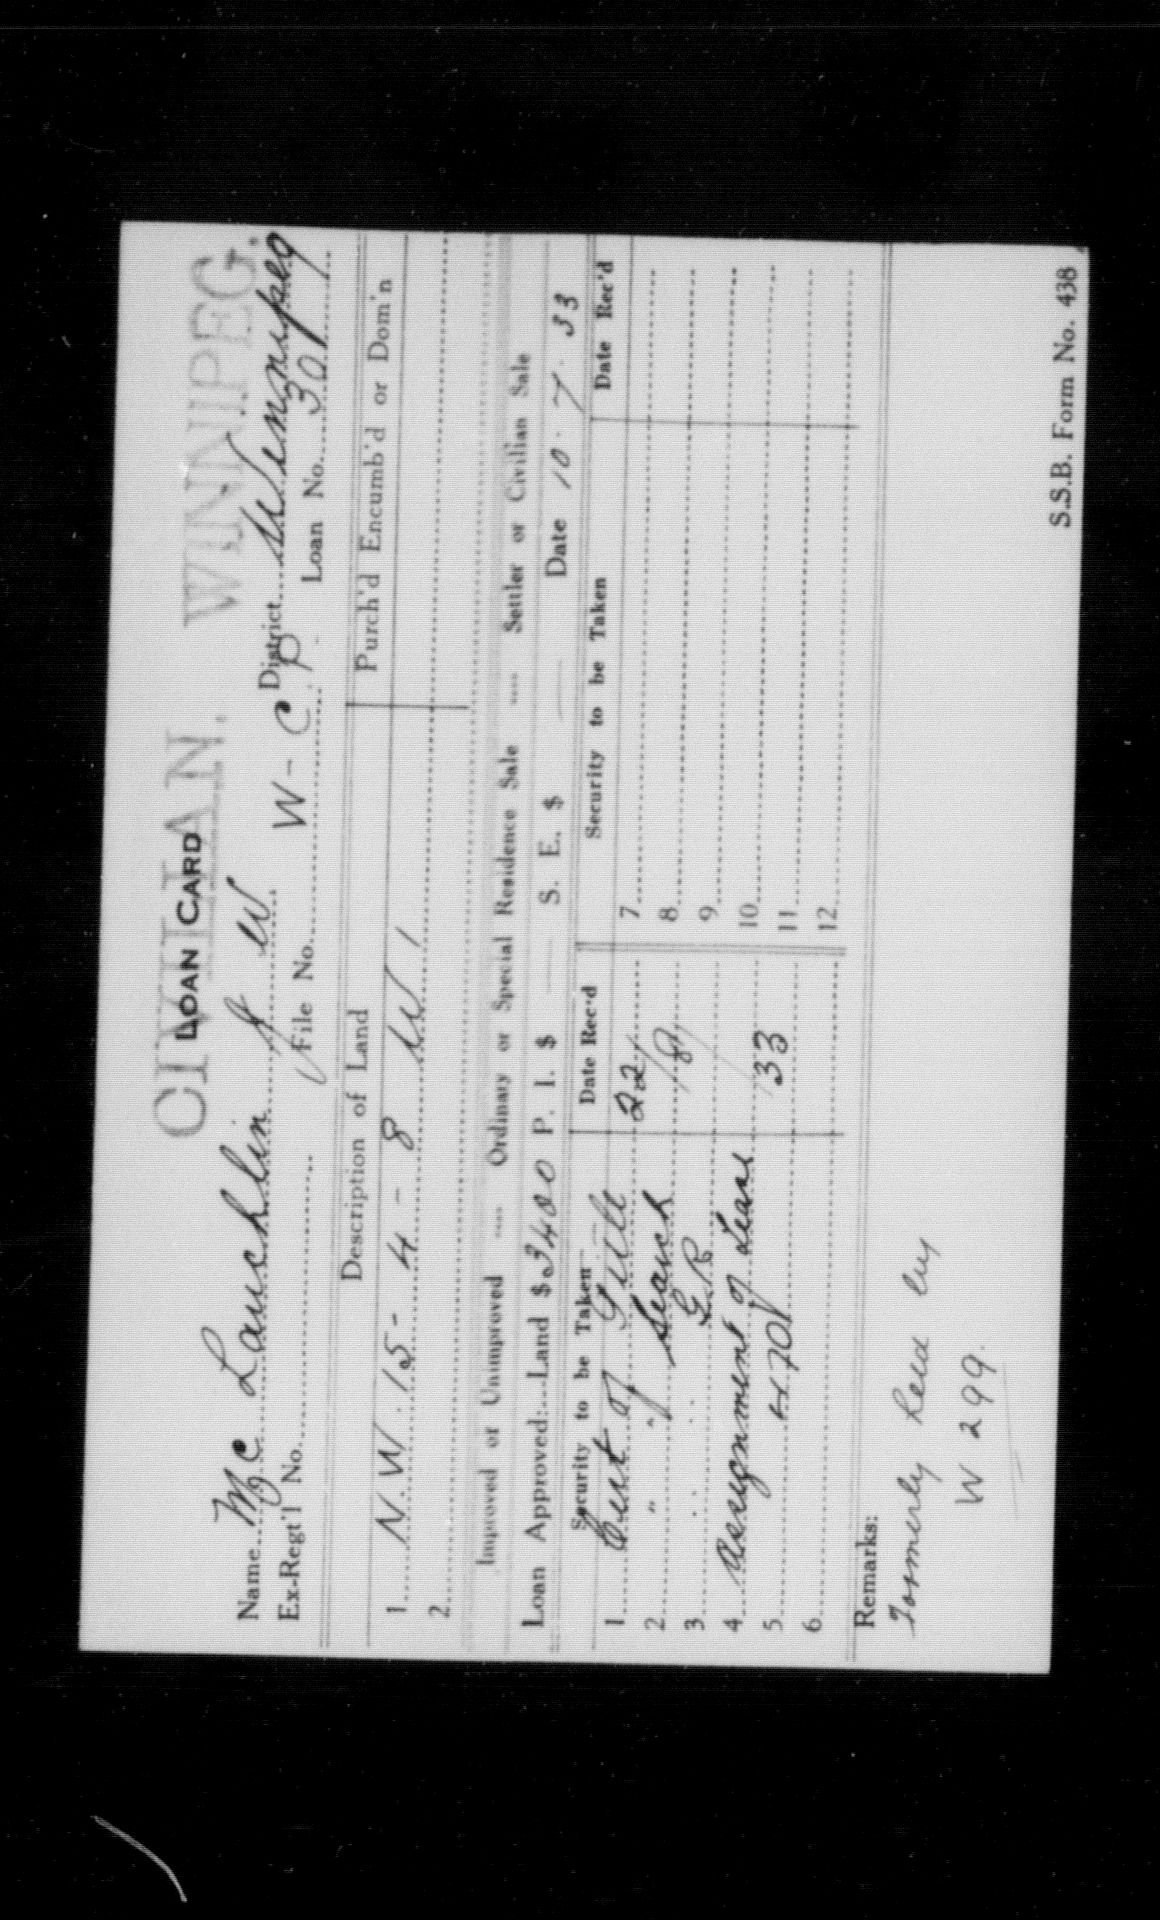 CIVILIAN. WINNIPEG.
LOAN CARD
Name Mc Lauchlin J W District Winnipeg
Ex-Regt'l No. File No. W - C P Loan No. 301
Description of Land Purch'd Encumb'd or Dom'n
1 N.W. 15 - 4 - 8 W 1
2
Improved or Unimproved Ordinary or Special Residence Sale Settler or Civilian Sale
Loan Approved: Land $ 3400 P. I. $ S. E. $ Date 10. 7. 33
Security to be Taken Date Rec'd Security to be Taken Date Rec'd
1 Cert of Title 22/ 7
2 " " Search /8/ 8
3 " " G.R. 9
4 Assignment of Lease /33 10
5 11
6 12
Remarks:
Formerly held by
W 299.
S.S.B. Form No. 438